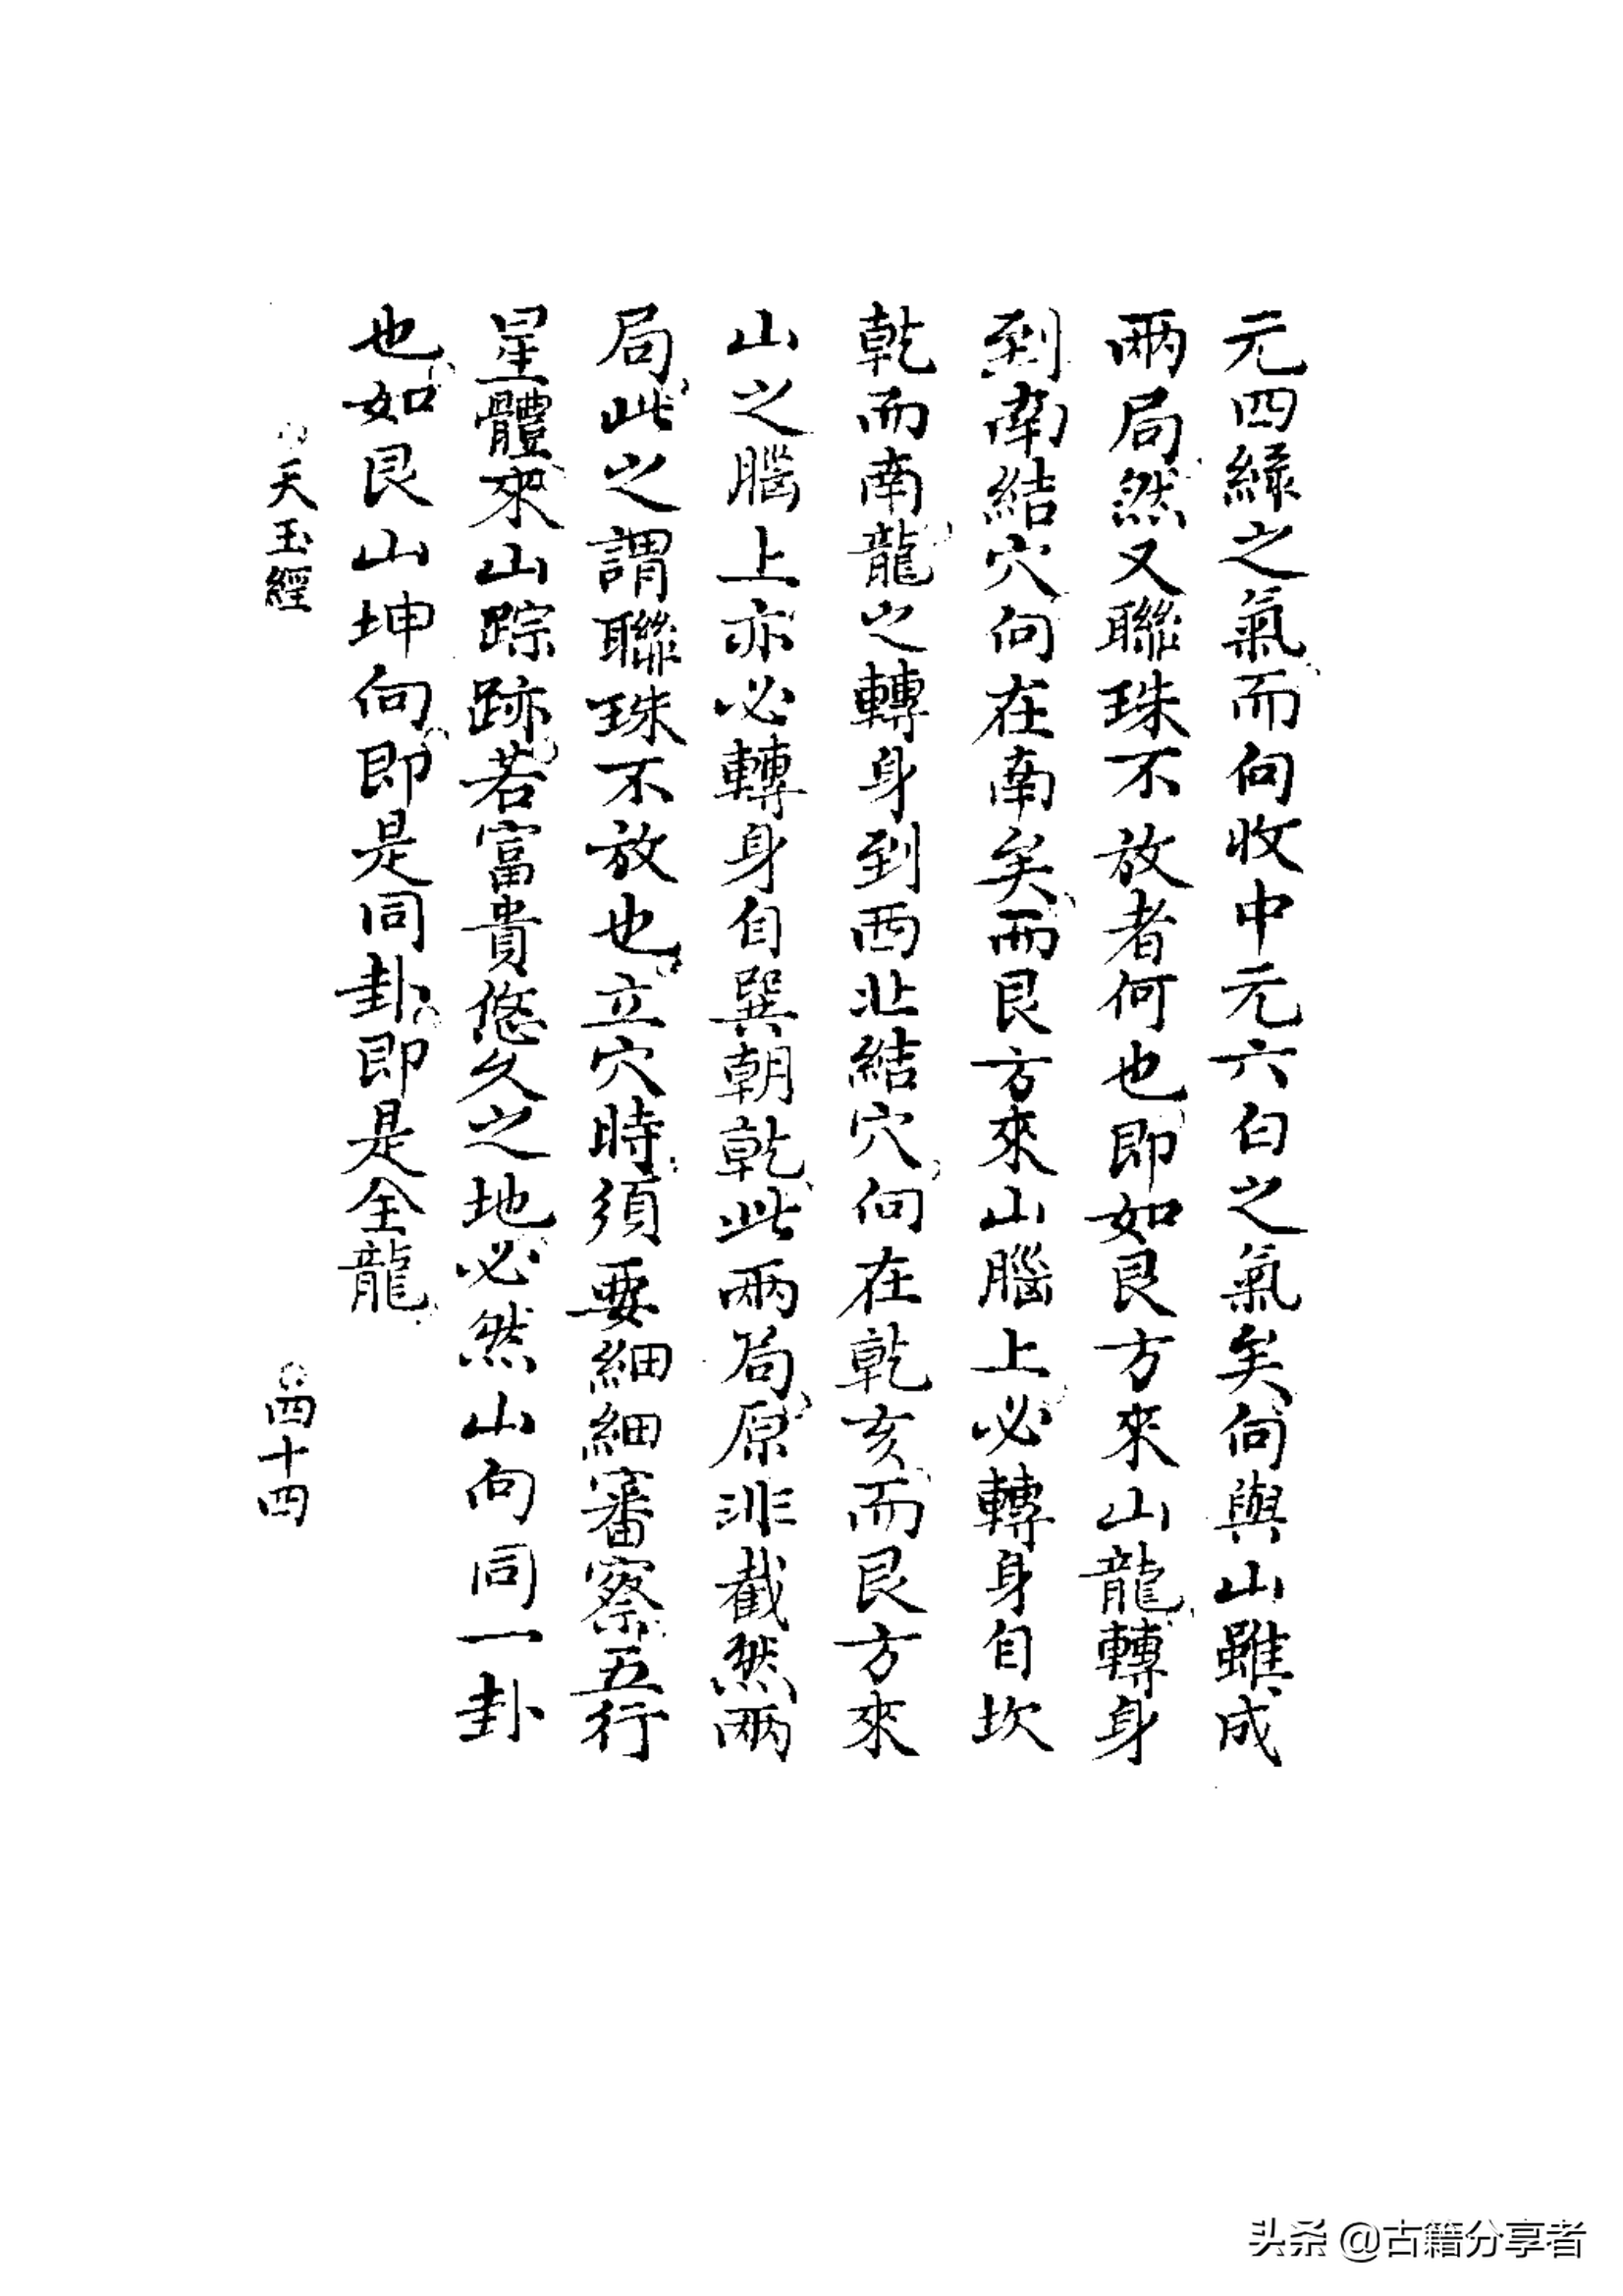 元四綠之氣而向收中元六白之氣矣向與山雖成
兩局然又聯珠不放者何也即如艮方來山龍轉身
到南結穴向在南矣而艮方來山腦上必轉身自坎
乾而南龍之轉身到西北結穴向在乾亥而艮方來
山之腦上亦必轉身自巽朝乾此兩局原非截然兩
局此之謂聯珠不放也立穴時須要細細審察五行
星體來山踪跡若富貴悠久之地必然山向同一卦
也如艮山坤向即是同卦即是全龍
天玉經
四十四
头条 @古籍分享者